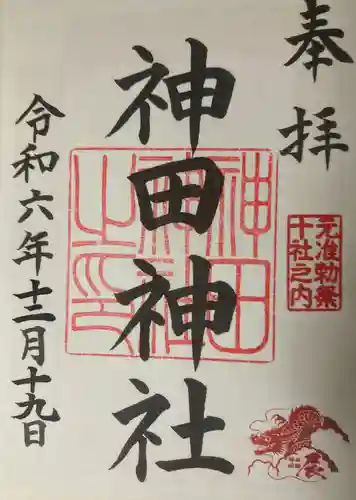 奉拝
元准勅祭
十社之内
辰
神田神社
神田神社之印
令和六年十二月十九日